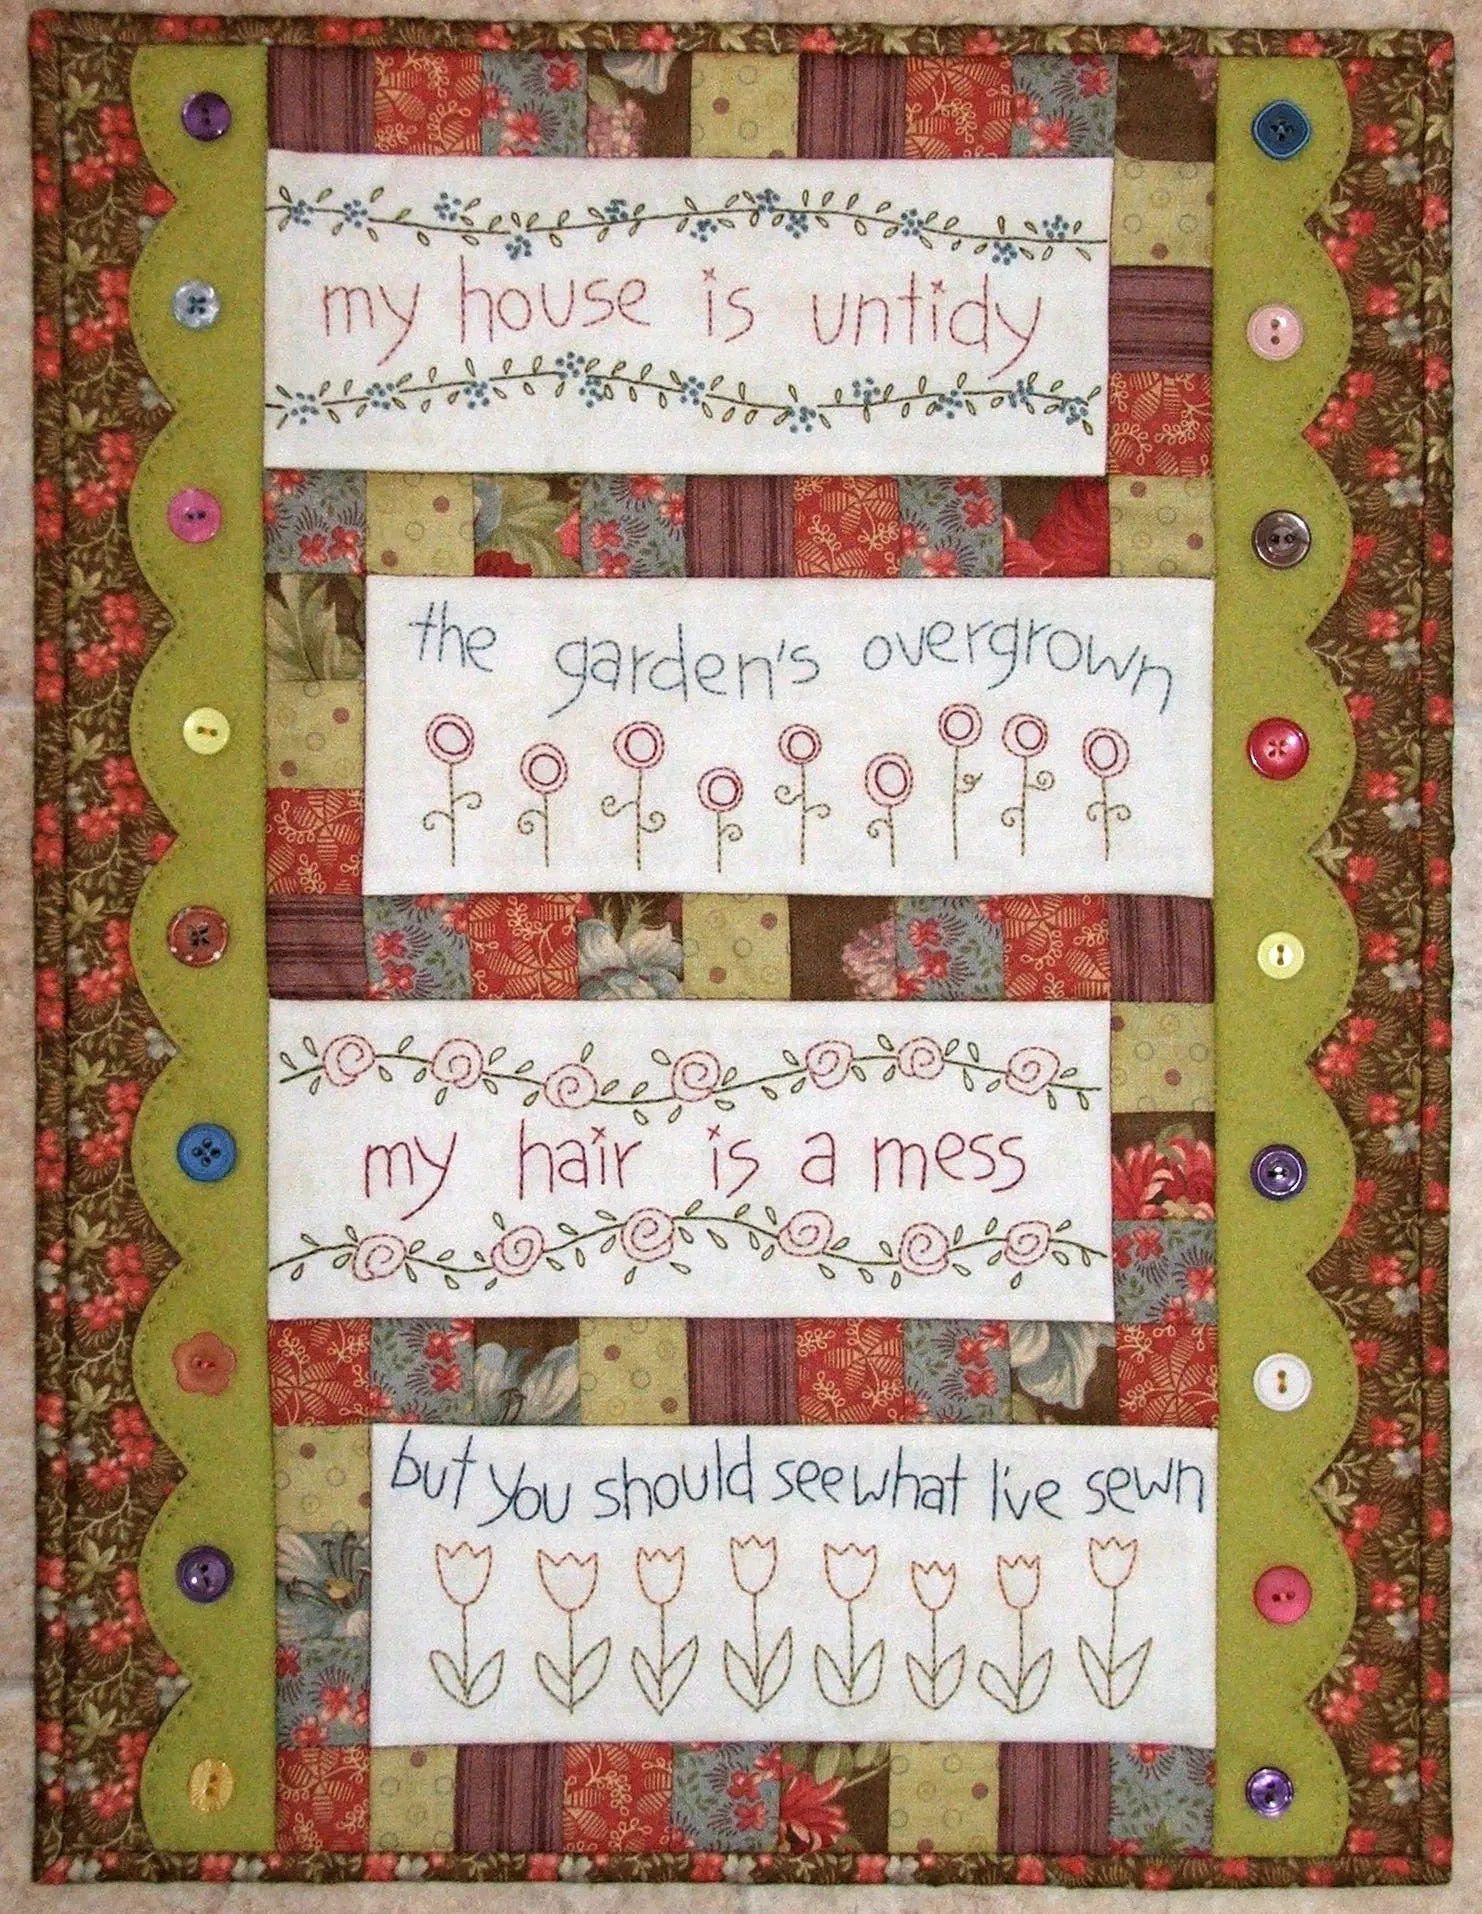 my house is untidy
the garden's overgrown
my hair is a mess
but you should see what I've sewn